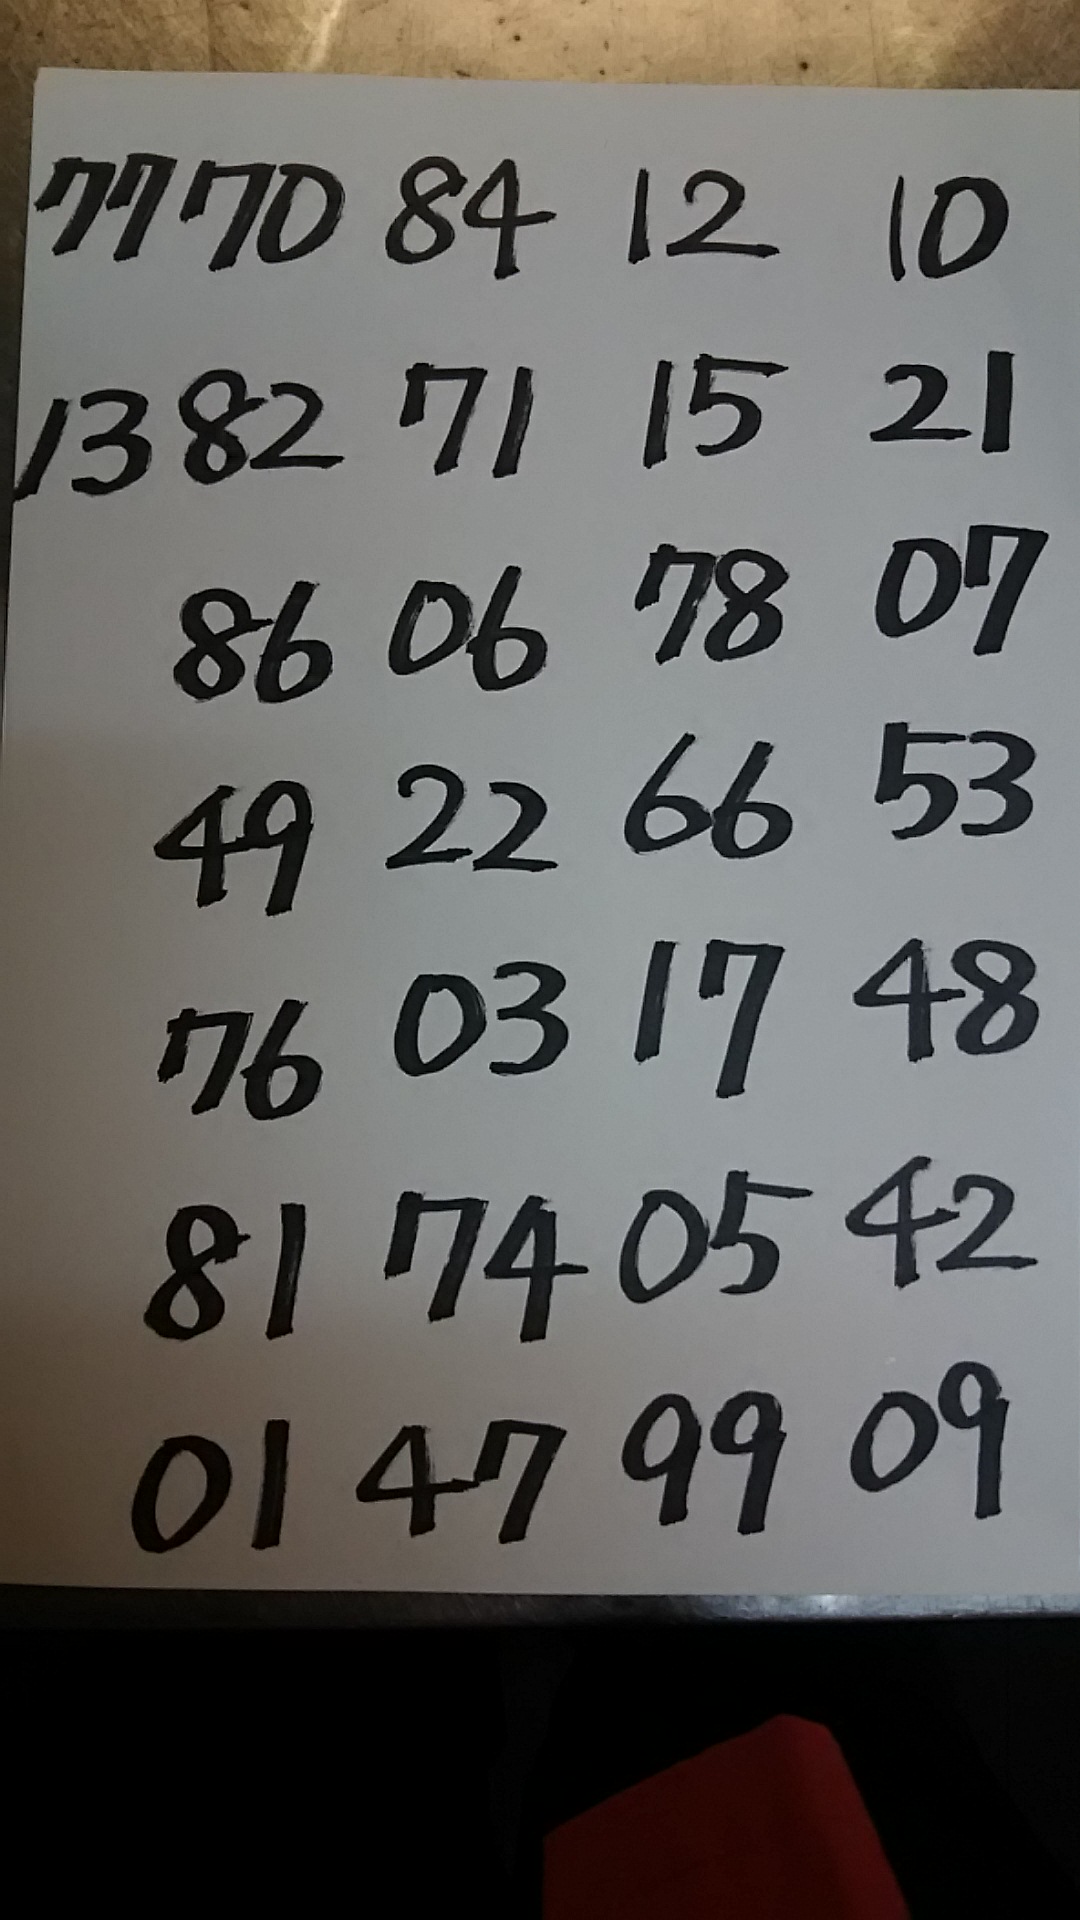 77 70 84 12 10
13 82 71 15 21
86 06 78 07
49 22 66 53
76 03 17 48
81 74 05 42
01 47 99 09